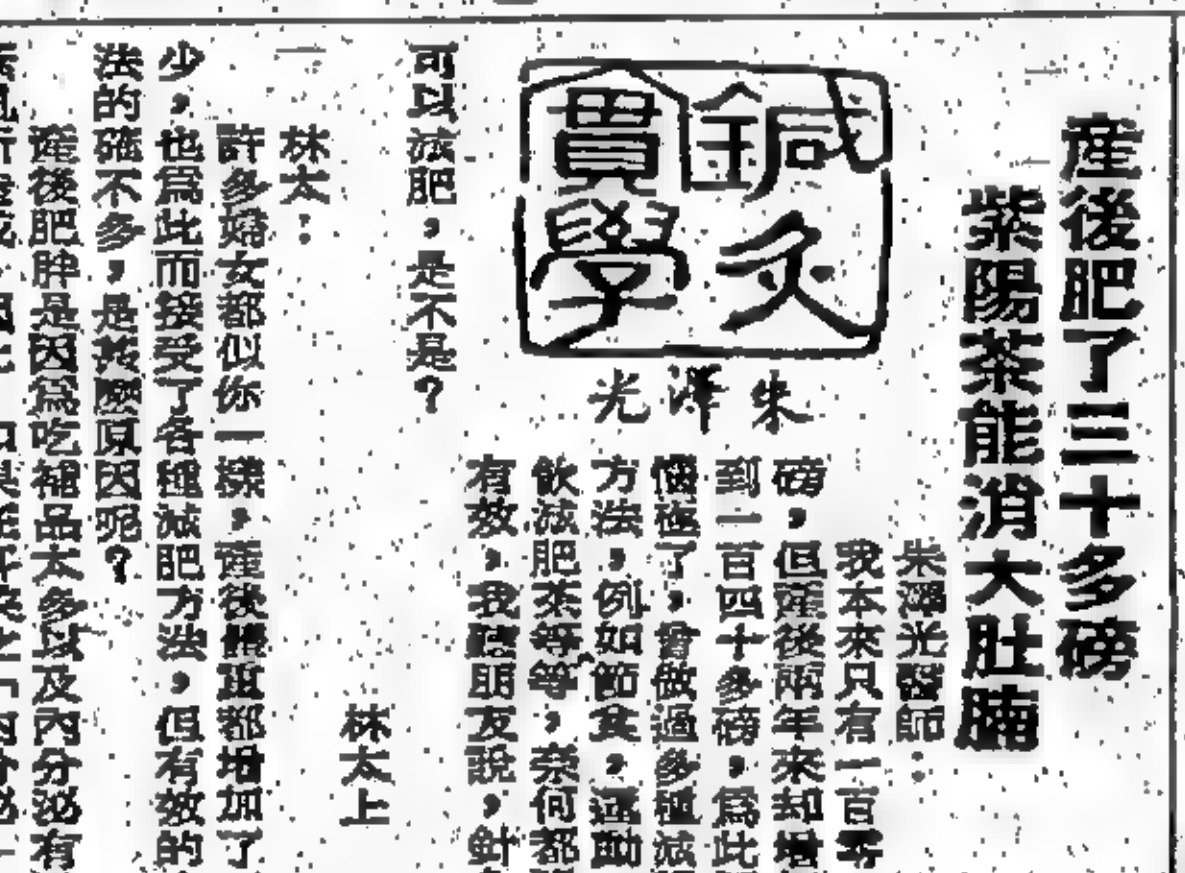 產後肥了三十多磅
紫陽茶能消大肚腩
鍼灸
貫學
朱澤光
朱澤光醫師：
我本來只有一百零
磅，但產後兩年來却增
到一百四十多磅，爲此
惱極了，曾做過多種減
方法，例如節食，運動
飲減肥茶等等，奈何都
有效，我聽朋友說，針
可以減肥，是不是？
林太上
林太：
許多婦女都似你一樣，產後體重都增加了
少，也爲此而接受了各種減肥方法，但有效的
法的確不多，是甚麼原因呢？
產後肥胖是因爲吃補品太多以及內分泌有